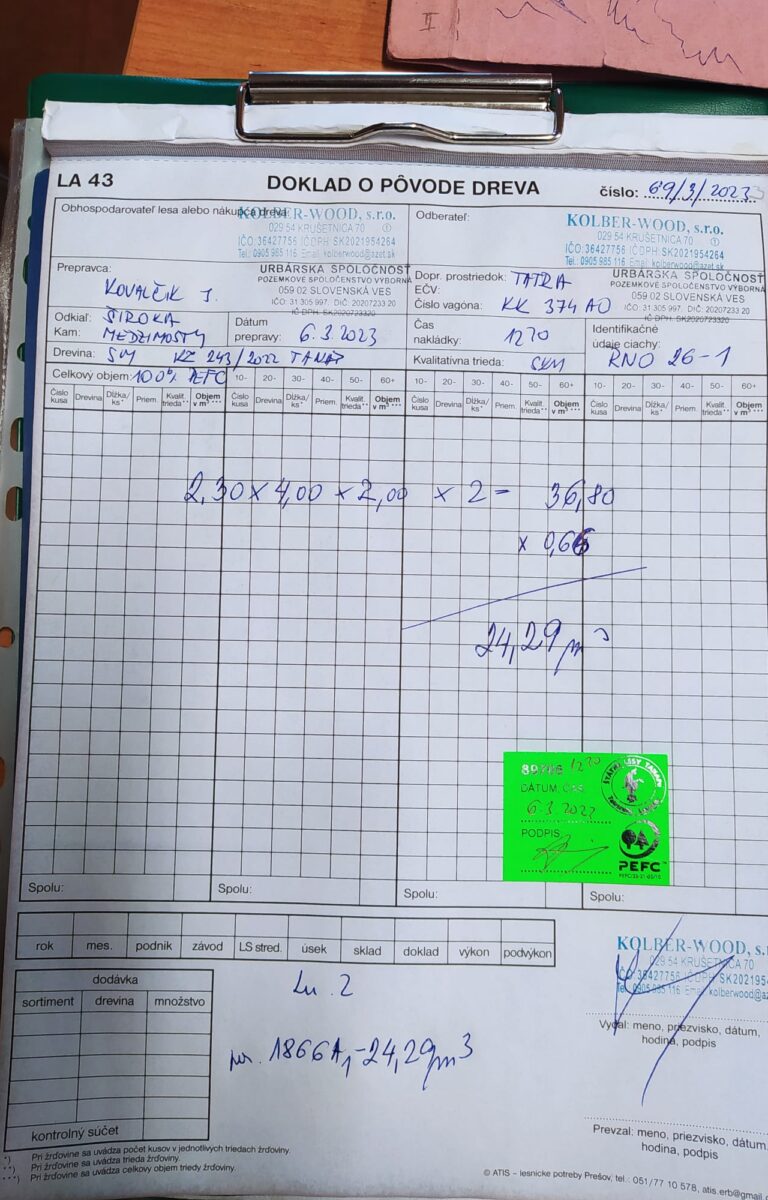 II
LA 43
DOKLAD O PÔVODE DREVA
číslo: 69/3/2023
Obhospodarovateľ lesa alebo nákupca dreva:
KOLBER-WOOD, s.r.o.
029 54 KRUŠETNICA 70 ①
IČO: 36427756 IČ DPH: SK2021954264
Tel.: 0905 985 116 Email: kolberwood@azet.sk
Odberateľ:
KOLBER-WOOD, s.r.o.
029 54 KRUŠETNICA 70 ①
IČO: 36427756 IČ DPH: SK2021954264
Tel.: 0905 985 116 Email: kolberwood@azet.sk
Prepravca:
KOVALČIK J.
URBÁRSKA SPOLOČNOSŤ
POZEMKOVÉ SPOLOČENSTVO VÝBORNÁ
059 02 SLOVENSKÁ VES
IČO: 31 305 997, DIČ: 20207233 20
IČ DPH: SK2020723320
Dopr. prostriedok: TATRA
EČV:
Číslo vagóna: KK 374 AO
URBÁRSKA SPOLOČNOSŤ
POZEMKOVÉ SPOLOČENSTVO VÝBORNÁ
059 02 SLOVENSKÁ VES
IČO: 31 305 997, DIČ: 20207233 20
IČ DPH: SK2020723320
Odkiaľ: ŠIROKA
Kam: MEDZIMOSTY
Dátum
prepravy: 6.3.2023
Čas
nakládky: 12 70
Identifikačné
údaje ciachy:
RNO 26-1
Drevina: SM KZ 243/2022 TANAP
Kvalitatívna trieda:
Celkový objem: 100% PEFC
10- 20- 30- 40- 50- 60+ 10- 20- 30- 40- 50- 60+ 10- 20- 30- 40- 50- 60+
Číslo kusa Drevina Dĺžka/ ks* Priem. Kvalit. trieda** Objem v m³ *** Číslo kusa Drevina Dĺžka/ ks* Priem. Kvalit. trieda** Objem v m³ *** Číslo kusa Drevina Dĺžka/ ks* Priem. Kvalit. trieda** Objem v m³ *** Číslo kusa Drevina Dĺžka/ ks* Priem. Kvalit. trieda** Objem v m³ ***
2,30 x 4,00 x 2,00 x 2 = 36,80
x 0,66
24,29 m³
ŠTÁTNE LESY TANAPU
DÁTUM, ČAS
6.3.2023
PODPIS
PEFC
Spolu: Spolu: Spolu: Spolu:
rok mes. podnik závod LS stred. úsek sklad doklad výkon podvýkon
dodávka
sortiment drevina množstvo
kontrolný súčet
Lu. 2
por. 1866A1-24,29 m3
KOLBER-WOOD, s.r
029 54 KRUŠETNICA 70
IČO: 36427756 IČ DPH: SK202195
Tel.: 0905 985 116 Email: kolberwood@az
Vydal: meno, priezvisko, dátum,
hodina, podpis
Prevzal: meno, priezvisko, dátum,
hodina, podpis
*) Pri žrďovine sa uvádza počet kusov v jednotlivých triedach žrďoviny.
**) Pri žrďovine sa uvádza trieda žrďoviny.
***) Pri žrďovine sa uvádza celkový objem triedy žrďoviny.
© ATIS – lesnícke potreby Prešov, tel.: 051/77 10 578, atis.erb@gmail.c